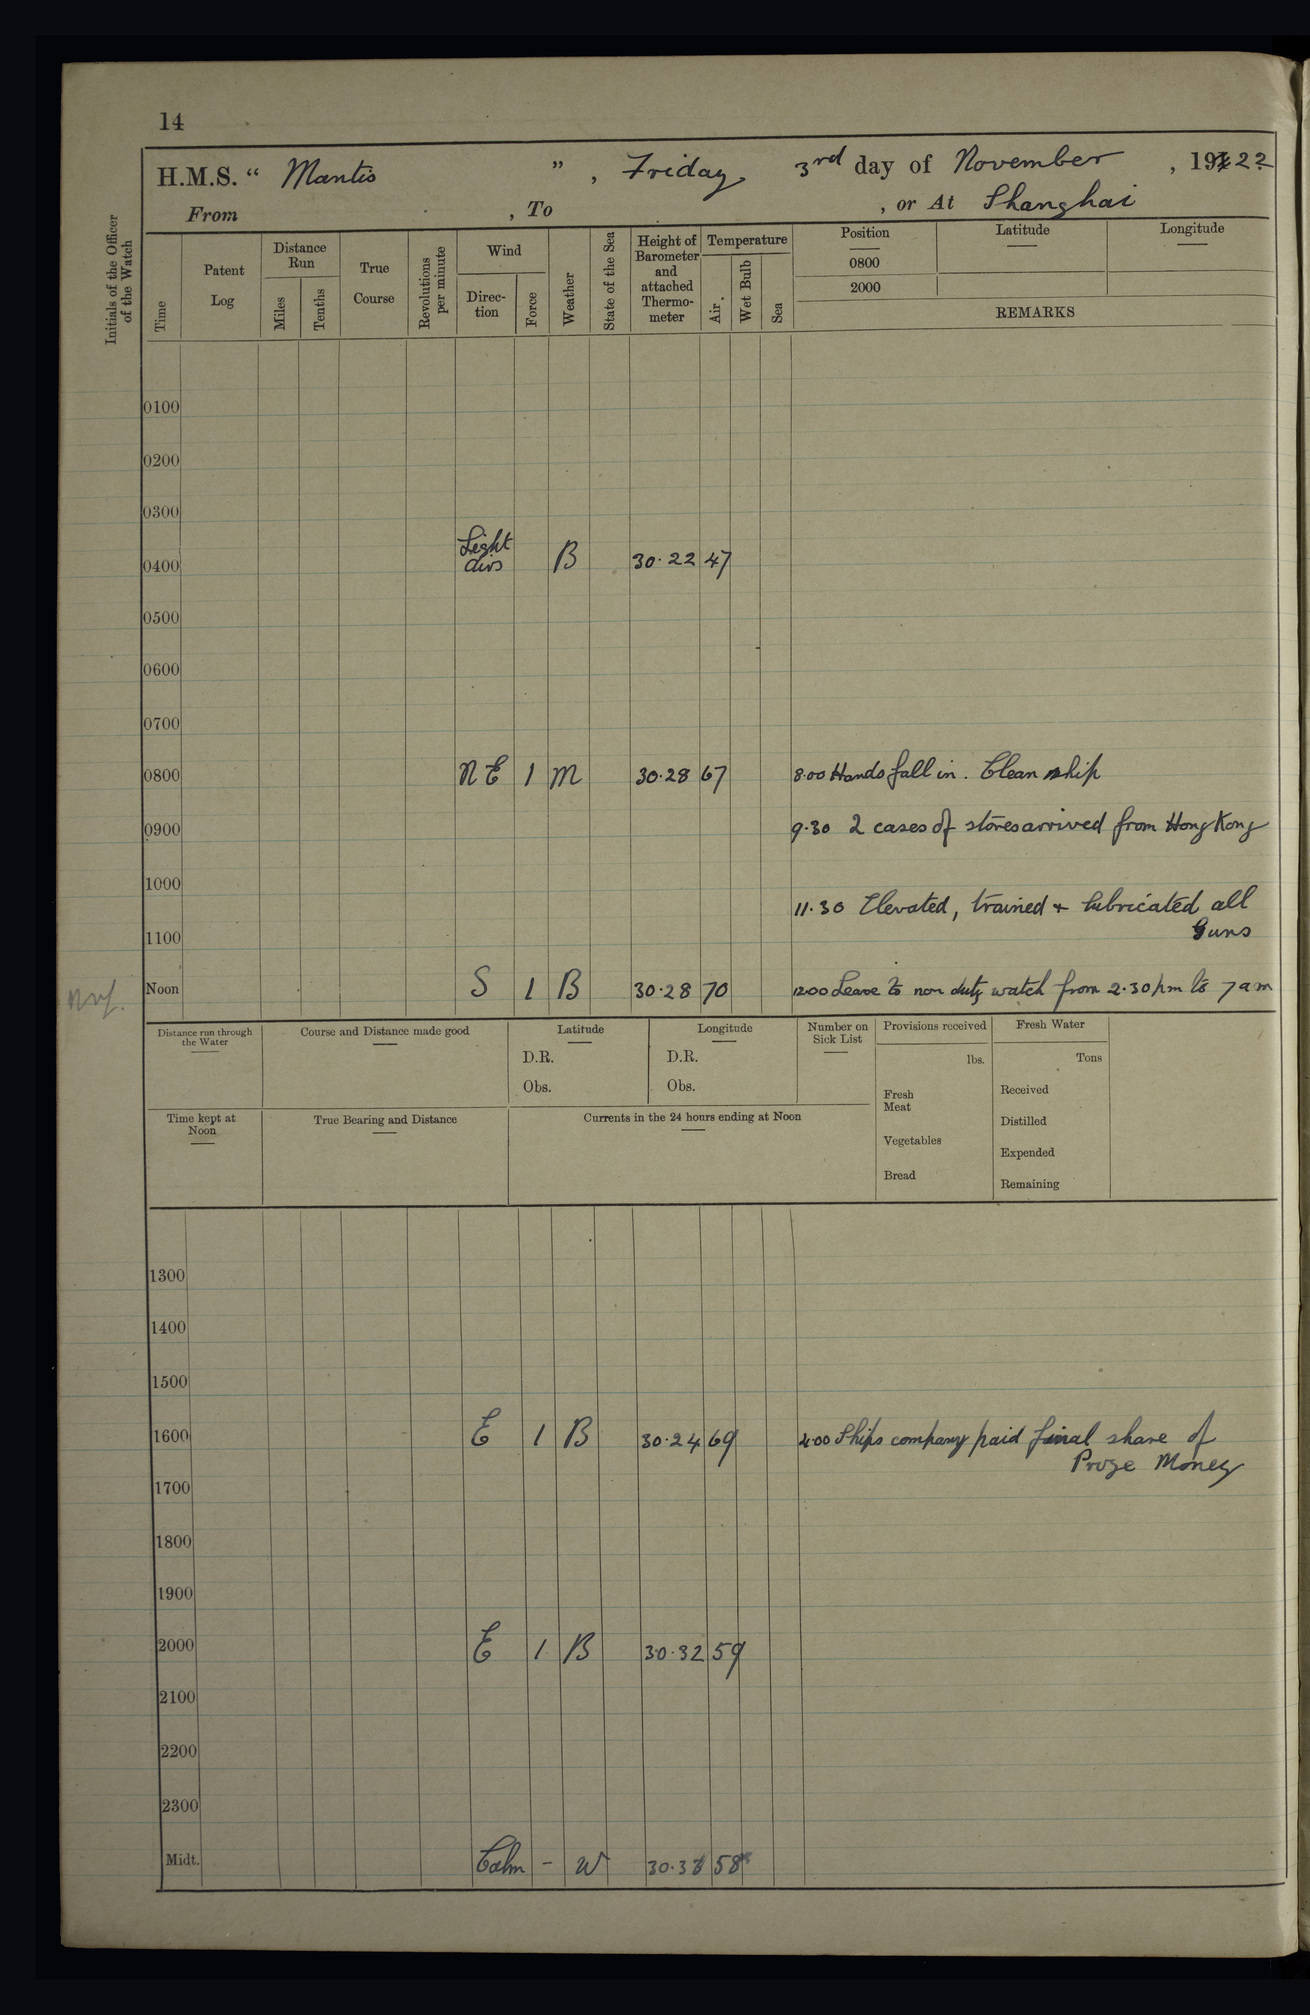 14
H.M.S. “ Mantis ” , Friday 3rd day of November , 1922
From , To , or At Shanghai
Initials of the Officer of the Watch
Time
Patent Log
Distance Run
Miles
Tenths
True Course
Revolutions per minute
Wind
Direc-tion
Force
Weather
State of the Sea
Height of Barometer and attached Thermo-meter
Temperature
Air.
Wet Bulb
Sea
Position Latitude Longitude
0800
2000
REMARKS
0100
0200
0300
0400 Light airs B 30.22 47
0500
0600
0700
0800 N E 1 m 30.28 67 8.00 Hands fall in. Clean ship
0900 9.30 2 cases of stores arrived from Hong Kong
1000 11.30 Elevated, trained + lubricated all
1100 Guns
Noon S 1 B 30.28 70 1200 Leave to non duty watch from 2.30 pm to 7 am
Distance run through the Water
Course and Distance made good
Latitude
D.R.
Obs.
Longitude
D.R.
Obs.
Number on Sick List
Provisions received
lbs.
Fresh Meat
Vegetables
Bread
Fresh Water
Tons
Received
Distilled
Expended
Remaining
Time kept at Noon
True Bearing and Distance
Currents in the 24 hours ending at Noon
1300
1400
1500
1600 E 1 B 30.24 69 4.00 Ships company paid final share of
Prize Money
1700
1800
1900
2000 E 1 B 30.32 59
2100
2200
2300
Midt. Calm - W 58